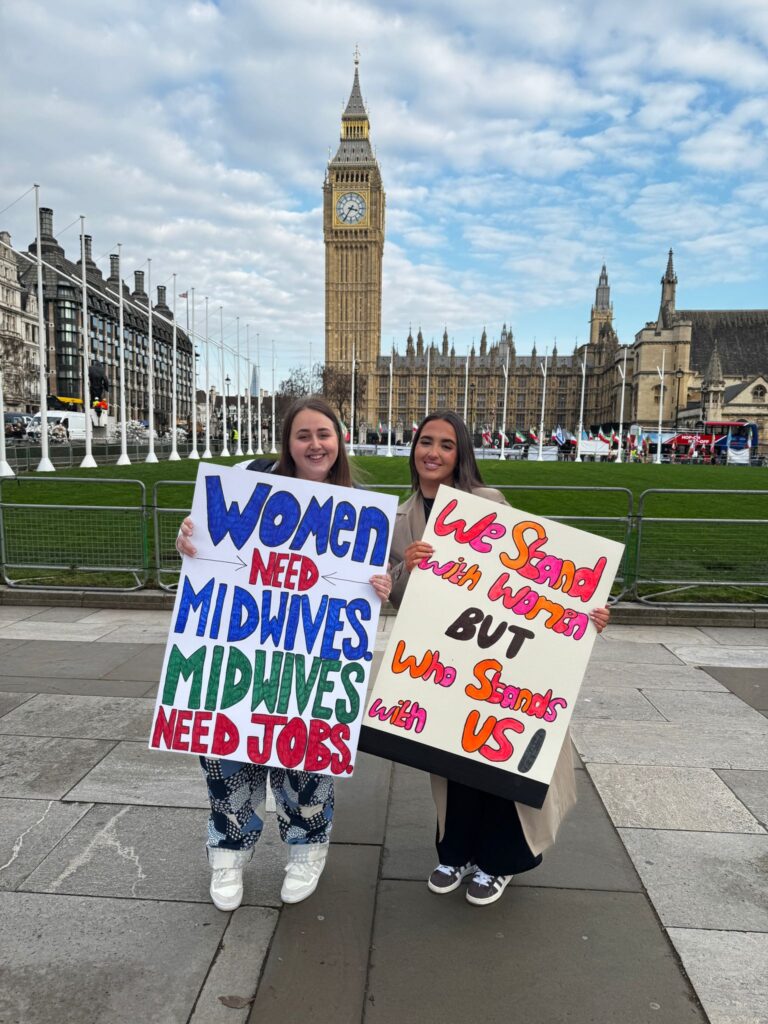 Women
NEED
MIDWIVES.
MIDWIVES
NEED JOBS.
We Stand
with Women
BUT
Who Stands
with US!